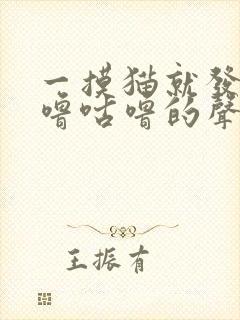 一摸猫就發
嚕咕嚕的聲
王振有